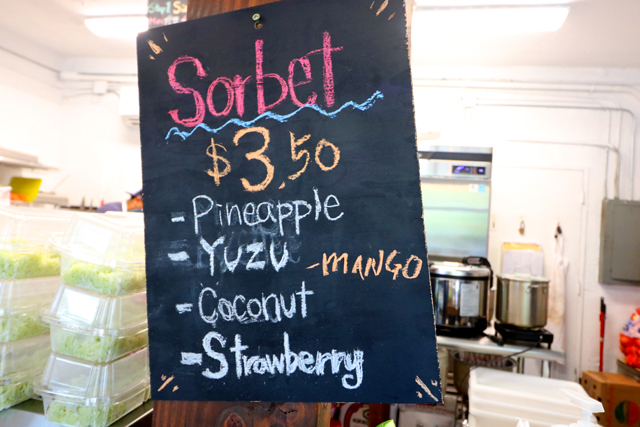 Sorbet
$3.50
- Pineapple
- Yuzu
- MANGO
- Coconut
- Strawberry